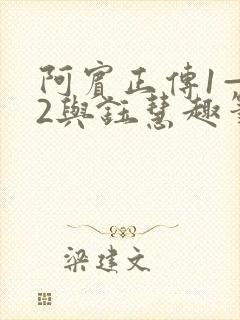 阿賓正傳1—
2與鈺慧趣
梁建文